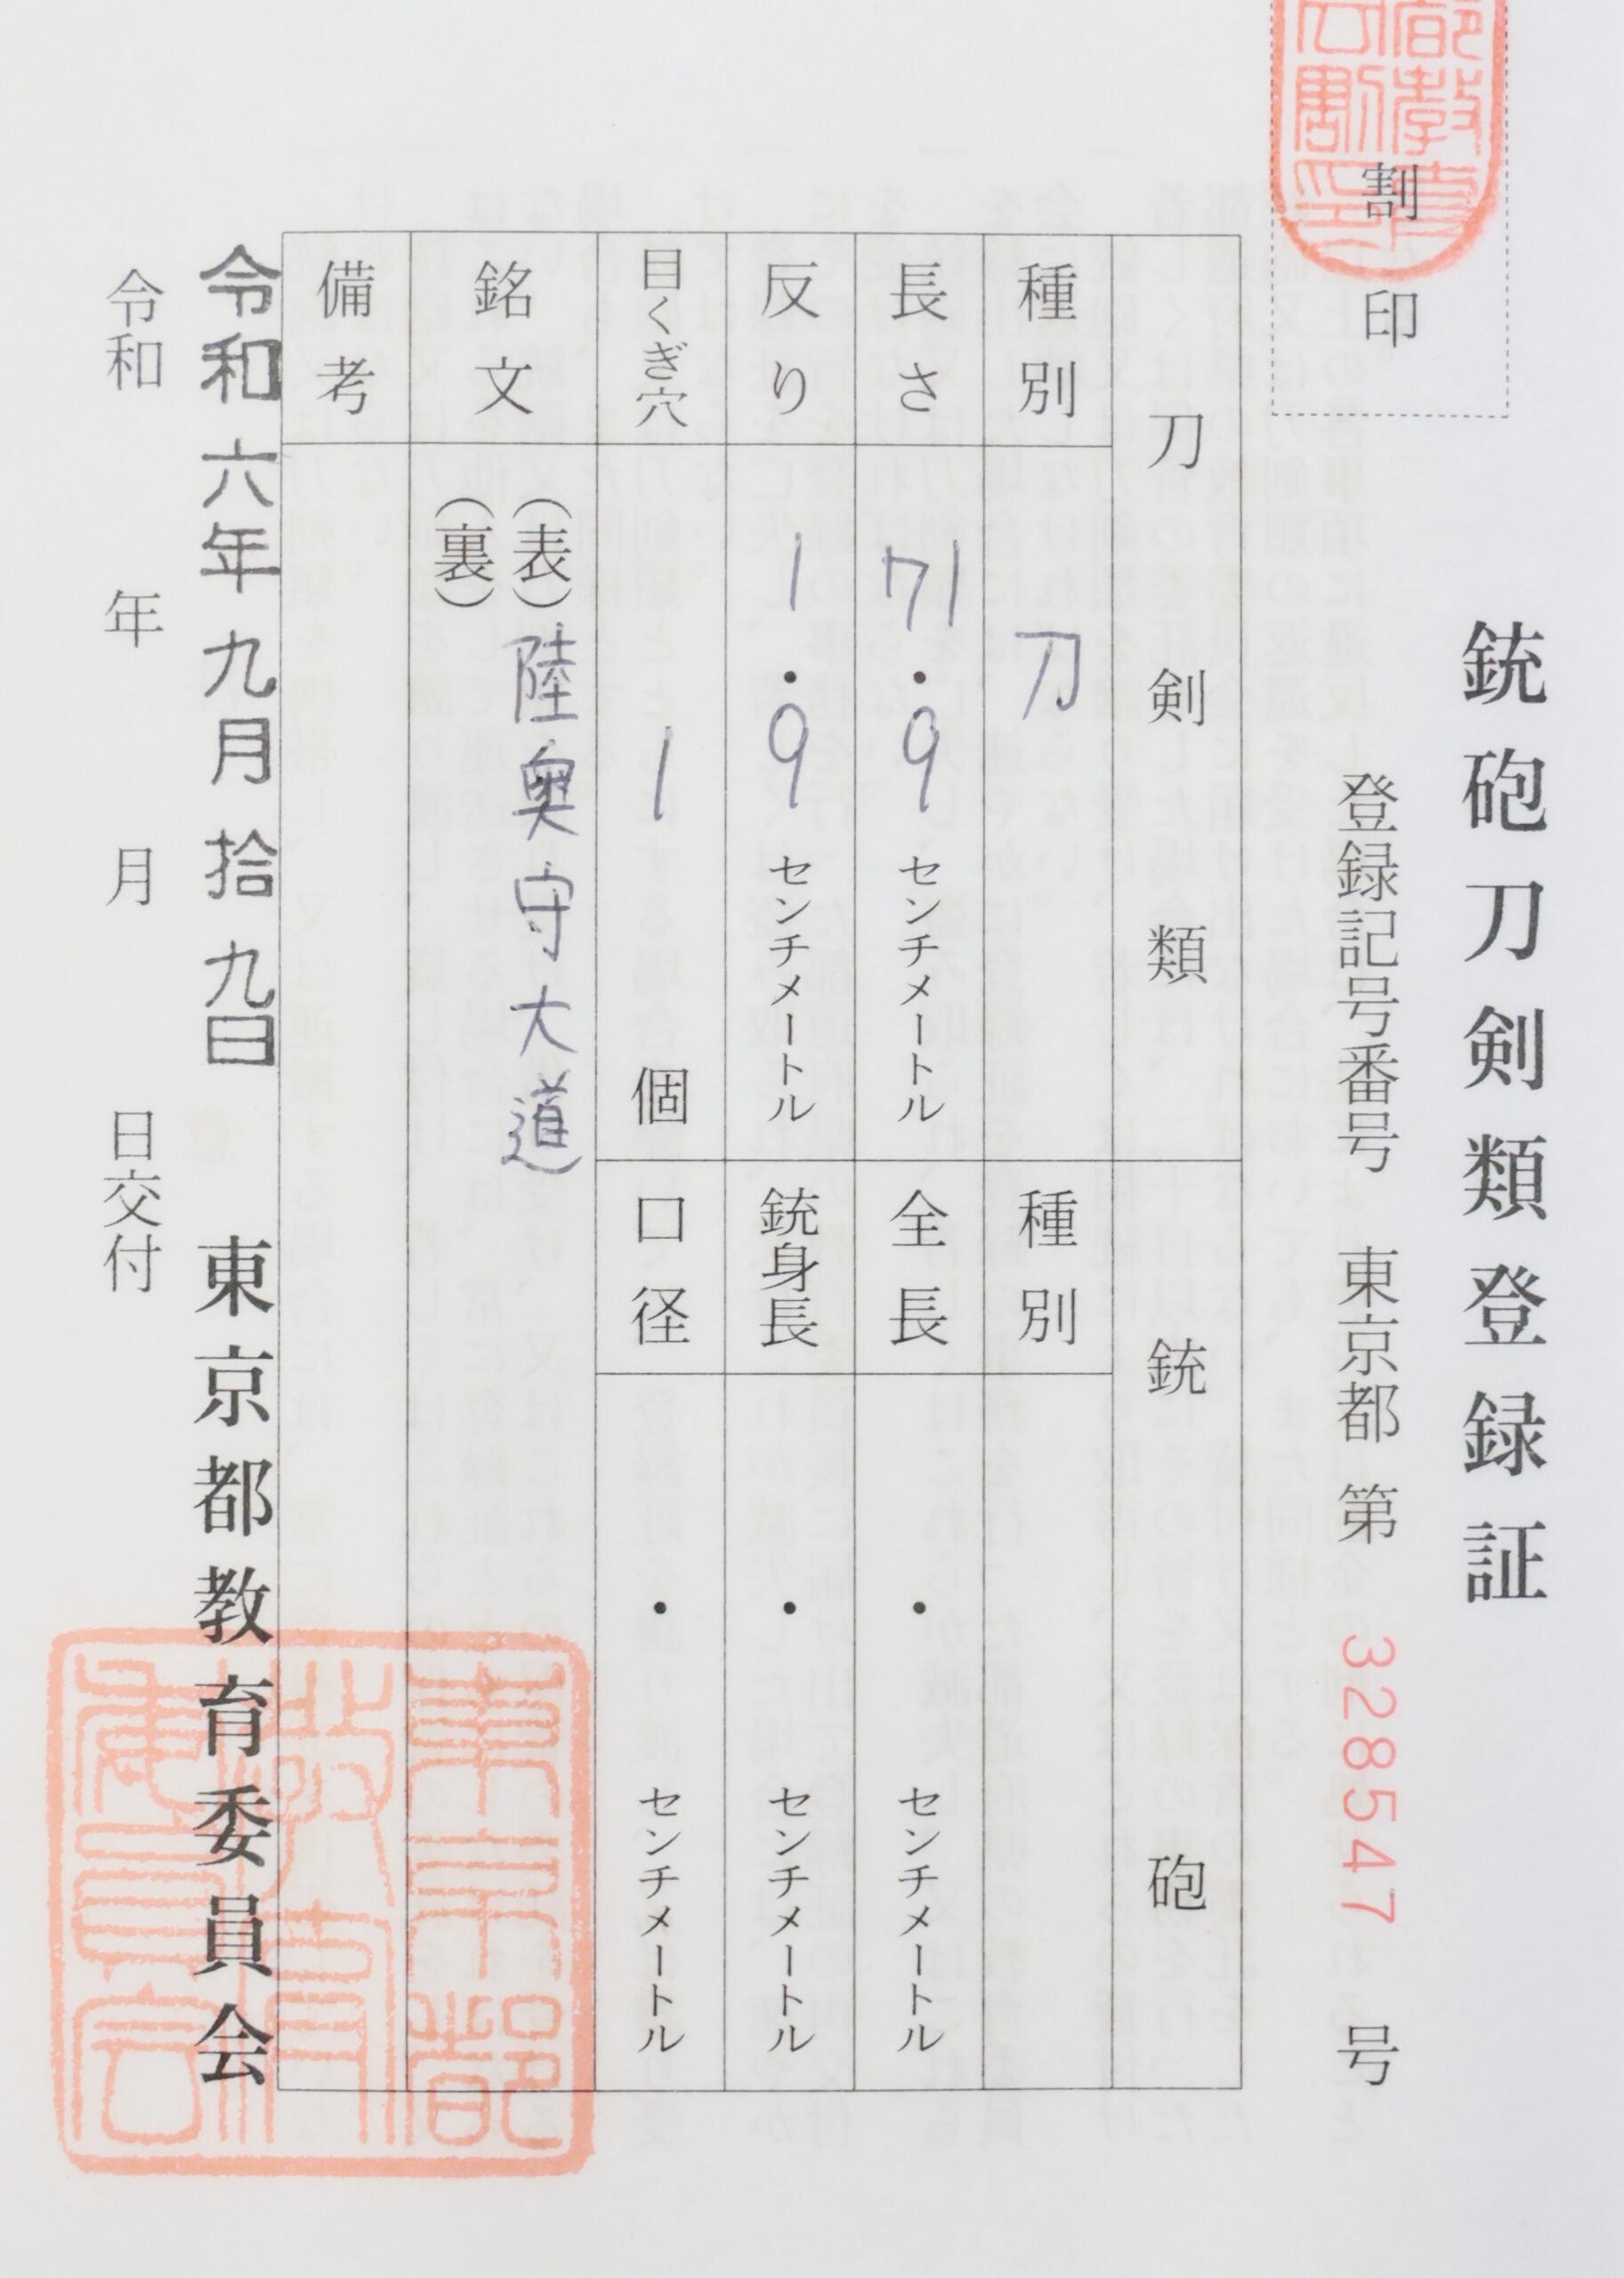 銃砲刀剣類登録証
割印
登録記号番号 東京都 第 328547 号
刀剣類 銃砲
種別 刀 種別
長さ 71.9 センチメートル 全長 ・ センチメートル
反り 1.9 センチメートル 銃身長 ・ センチメートル
目くぎ穴 1 個 口径 ・ センチメートル
銘文 (表) 陸奥守大道
(裏)
備考
令和六年九月拾九日 東京都教育委員会
令和 年 月 日交付